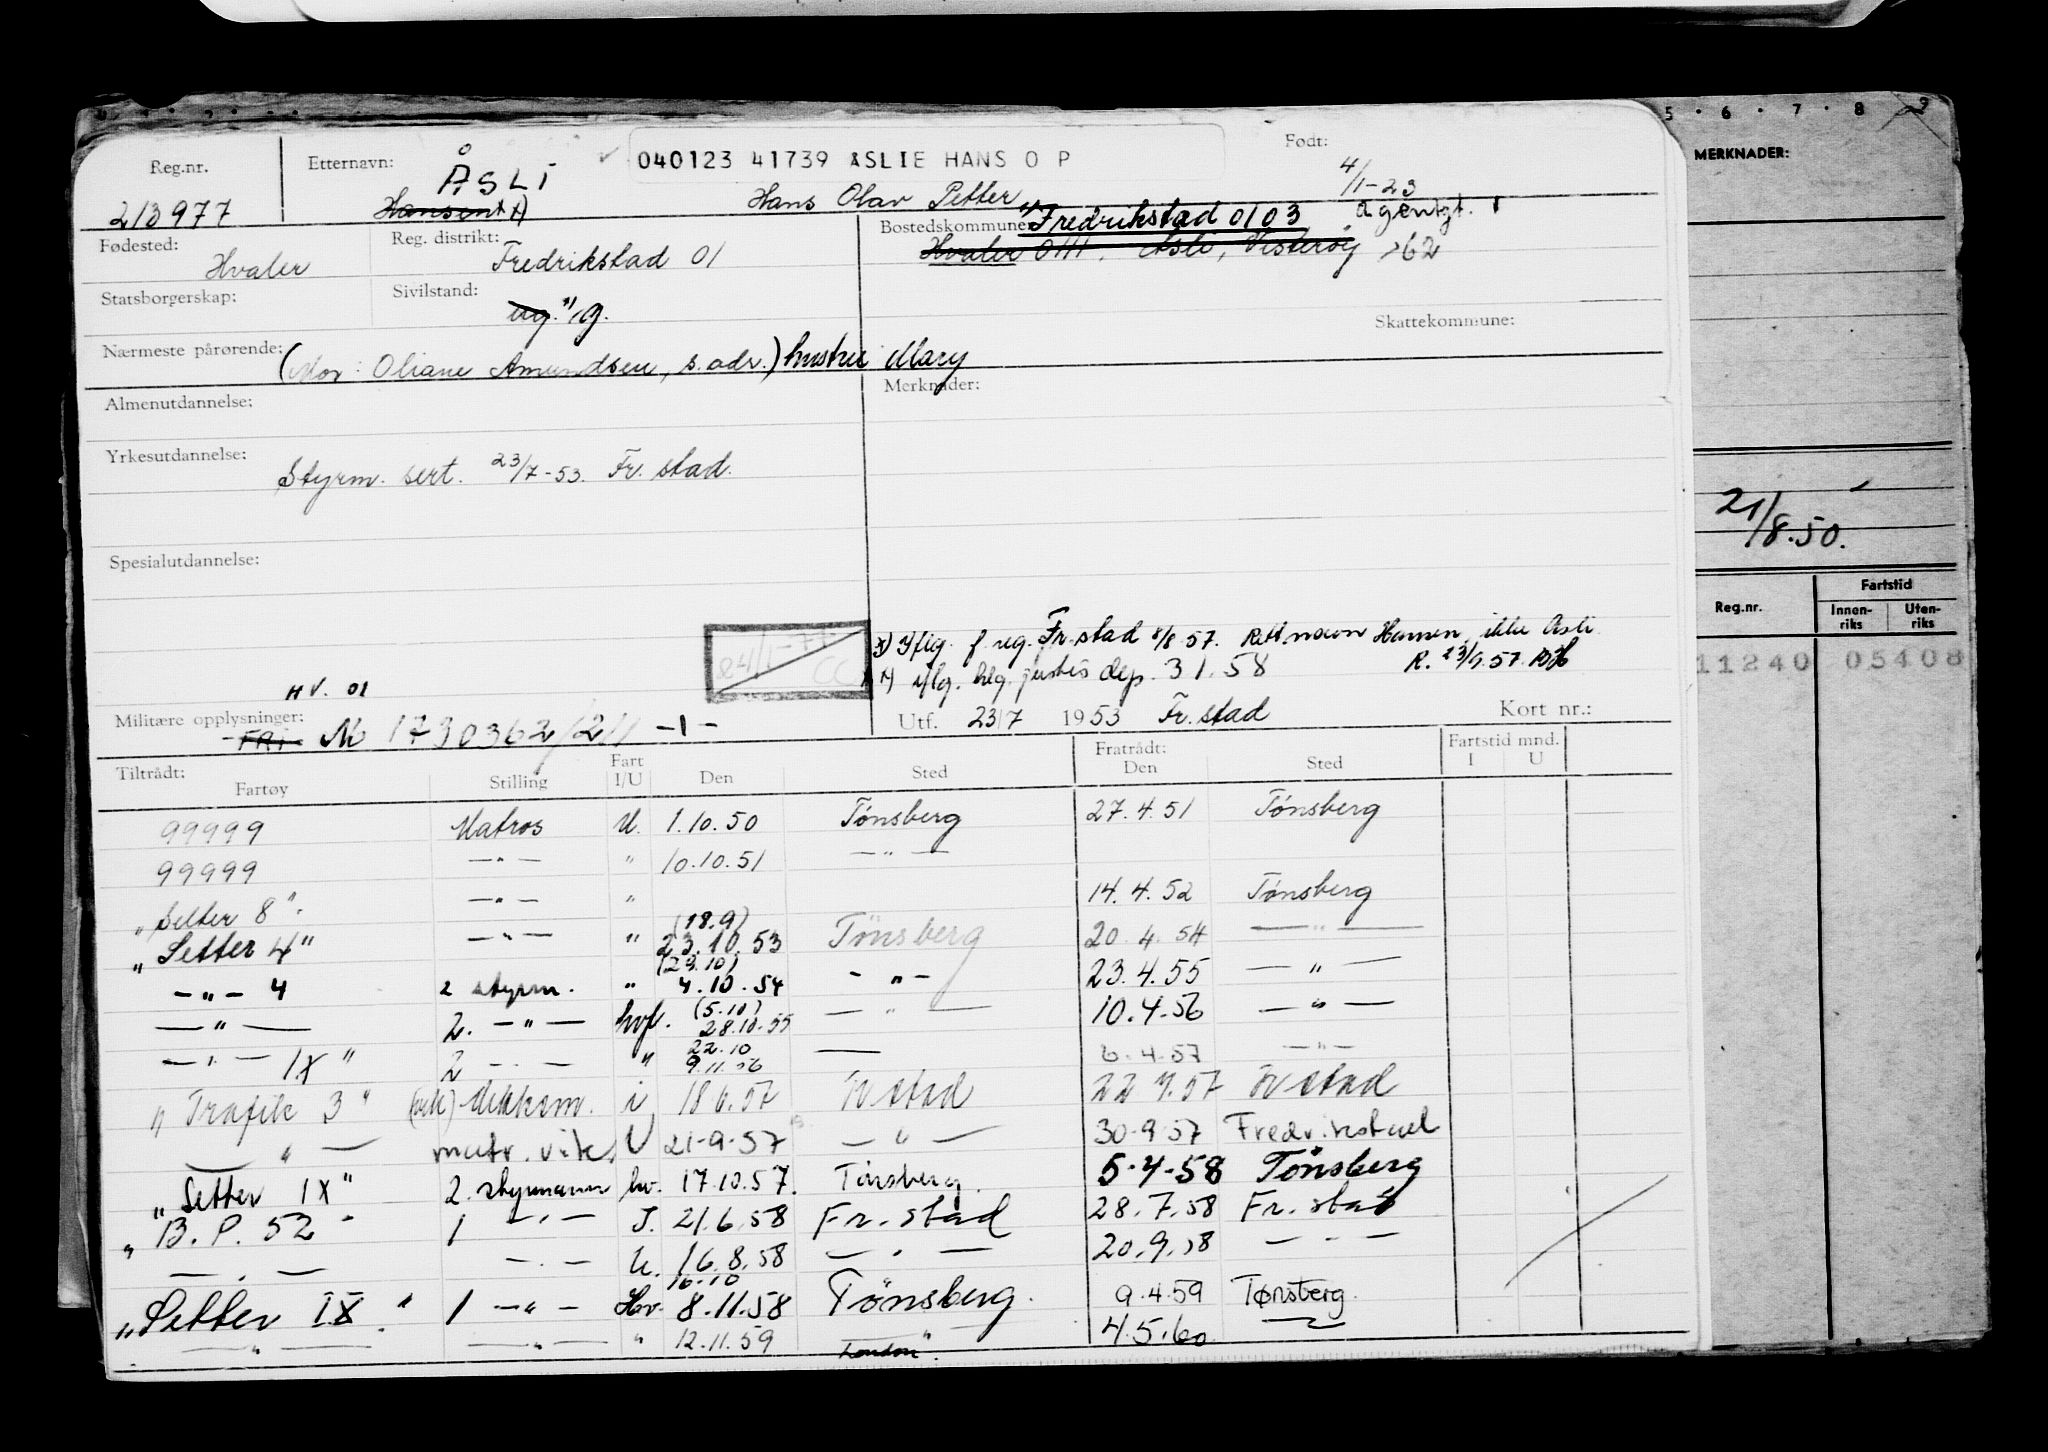 5 · 6 · 7 · 8 · 9
Reg.nr. Etternavn: 040123 41739 ÅSLIE HANS O P Født:
213977 ÅSLI Hansen x) Hans Olav Petter 4/1-23
Fødested: Hvaler Reg. distrikt: Fredrikstad 01 Bostedskommune: Fredrikstad 0103
Hvaler 0111, Åsli, Vesterøy >62
Statsborgerskap: Sivilstand: ug. g.
Skattekommune:
Nærmeste pårørende: (Mor: Oliane Amundsen, s. adr.) hustru Mary
Almenutdannelse: Merknader:
Yrkesutdannelse: Styrm. sert. 23/7-53. Fr. stad.
Spesialutdannelse:
x) Iflg. f. reg. Fr.stad 8/8 57. Rett navn Hansen, ikke Åsli
R. 23/9.57
iflg. justis dep. 3 1. 58
HV. 01
Militære opplysninger: FRI M 1730362/211 -1-
Utf. 23/7 1953 Fr. stad Kort nr.:
Tiltrådt: Fratrådt: Fartstid mnd.
Fartøy Stilling Fart I/U Den Sted Den Sted I U
99999 Matros U. 1.10.50 Tønsberg 27.4.51 Tønsberg
99999 — " — " 10.10.51 — " —
"Setter 8". — " — " 14.4.52 Tønsberg
"Setter 4" — " — " (18.9) 23.10.53 Tönsberg 20.4.54 — " —
— " — 4 2 styrm. " (29.10) 4.10.54 - " - 23.4.55 — " —
— " — 2. — " — hvf. (5.10) 28.10.55 — " — 10.4.56 — " —
— " — IX" 2 — " — " 22.10 9.11.56 — 6.4.57 — " —
"Trafik 3" (vik) dekksm. i 18 6.57 Fr stad 22 7.57 Fr stad
— " — matr. vik. U 21-9-57 — " — 30-9-57 Fredrikstad
"Setter IX" 2. styrmann hv. 17.10.57. Tönsberg. 5-4-58 Tönsberg
"B.P. 52" 1 — " — I. 21.6.58 Fr. stad 28.7.58 Fr. stad
— " — — " — U. 16.8.58 — " — 20.9.58 — " —
"Setter IX" 1 — " — Hv. 16.10 8.11.58 Tönsberg. 9.4.59 Tønsberg.
— " — — " — " 12.11.59 London 4.5.60
MERKNADER:
21/8.50.
Reg.nr. Fartstid
Innen-riks Uten-riks
11240 05408